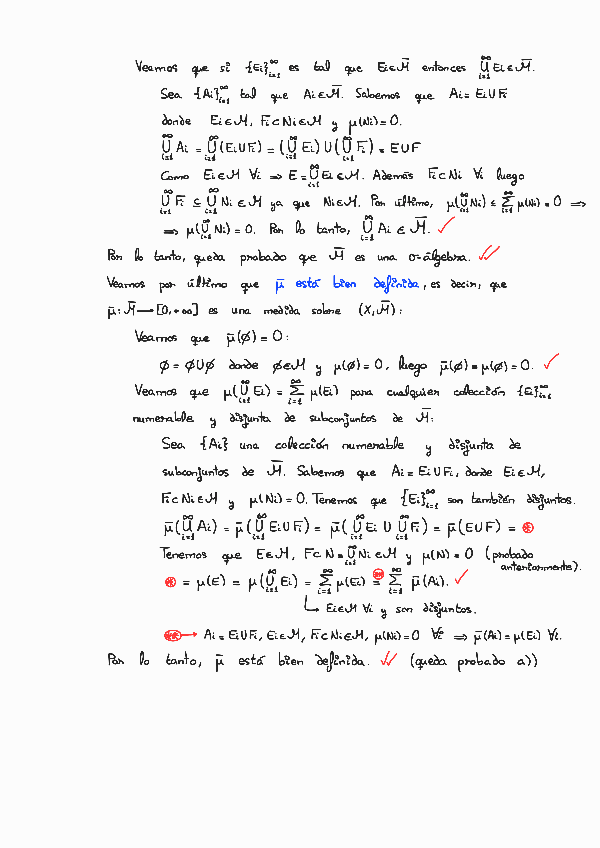 Veamos que si {Ei}_{i=1}^∞ es tal que Ei∈M̄ entonces ⋃_{i=1}^∞ Ei∈M̄.
Sea {Ai}_{i=1}^∞ tal que Ai∈M̄. Sabemos que Ai = Ei∪Fi
donde Ei∈M, Fi⊂Ni∈M y μ(Ni)=0.
⋃_{i=1}^∞ Ai = ⋃_{i=1}^∞ (Ei∪Fi) = (⋃_{i=1}^∞ Ei) ∪ (⋃_{i=1}^∞ Fi) = E∪F
Como Ei∈M ∀i ⇒ E = ⋃_{i=1}^∞ Ei∈M. Además Fi⊂Ni ∀i luego
⋃_{i=1}^∞ Fi ⊆ ⋃_{i=1}^∞ Ni∈M ya que Ni∈M. Por último, μ(⋃_{i=1}^∞ Ni) ≤ ∑_{i=1}^∞ μ(Ni) = 0 ⇒
⇒ μ(⋃_{i=1}^∞ Ni) = 0. Por lo tanto, ⋃_{i=1}^∞ Ai ∈ M̄. ✓
Por lo tanto, queda probado que M̄ es una σ-álgebra. ✓✓
Veamos por último que μ̄ está bien definida, es decir, que
μ̄: M̄ → [0,+∞] es una medida sobre (X,M̄):
Veamos que μ̄(∅) = 0:
∅ = ∅∪∅ donde ∅∈M y μ(∅)=0, luego μ̄(∅) = μ(∅) = 0. ✓
Veamos que μ(⋃_{i=1}^∞ Ei) = ∑_{i=1}^∞ μ(Ei) para cualquier colección {Ei}_{i=1}^∞
numerable y disjunta de subconjuntos de M̄:
Sea {Ai} una colección numerable y disjunta de
subconjuntos de M̄. Sabemos que Ai = Ei∪Fi, donde Ei∈M,
Fi⊂Ni∈M y μ(Ni)=0. Tenemos que {Ei}_{i=1}^∞ son también disjuntos.
μ̄(⋃_{i=1}^∞ Ai) = μ̄(⋃_{i=1}^∞ Ei∪Fi) = μ̄(⋃_{i=1}^∞ Ei ∪ ⋃_{i=1}^∞ Fi) = μ̄(E∪F) = ⊛
Tenemos que E∈M, F⊂N = ⋃_{i=1}^∞ Ni∈M y μ(N)=0 (probado
anteriormente).
⊛ = μ(E) = μ(⋃_{i=1}^∞ Ei) = ∑_{i=1}^∞ μ(Ei) =^{(**)} ∑_{i=1}^∞ μ̄(Ai). ✓
↳ Ei∈M ∀i y son disjuntos.
(**) → Ai = Ei∪Fi, Ei∈M, Fi⊂Ni∈M, μ(Ni)=0 ∀i ⇒ μ̄(Ai) = μ(Ei) ∀i.
Por lo tanto, μ̄ está bien definida. ✓✓ (queda probado a))